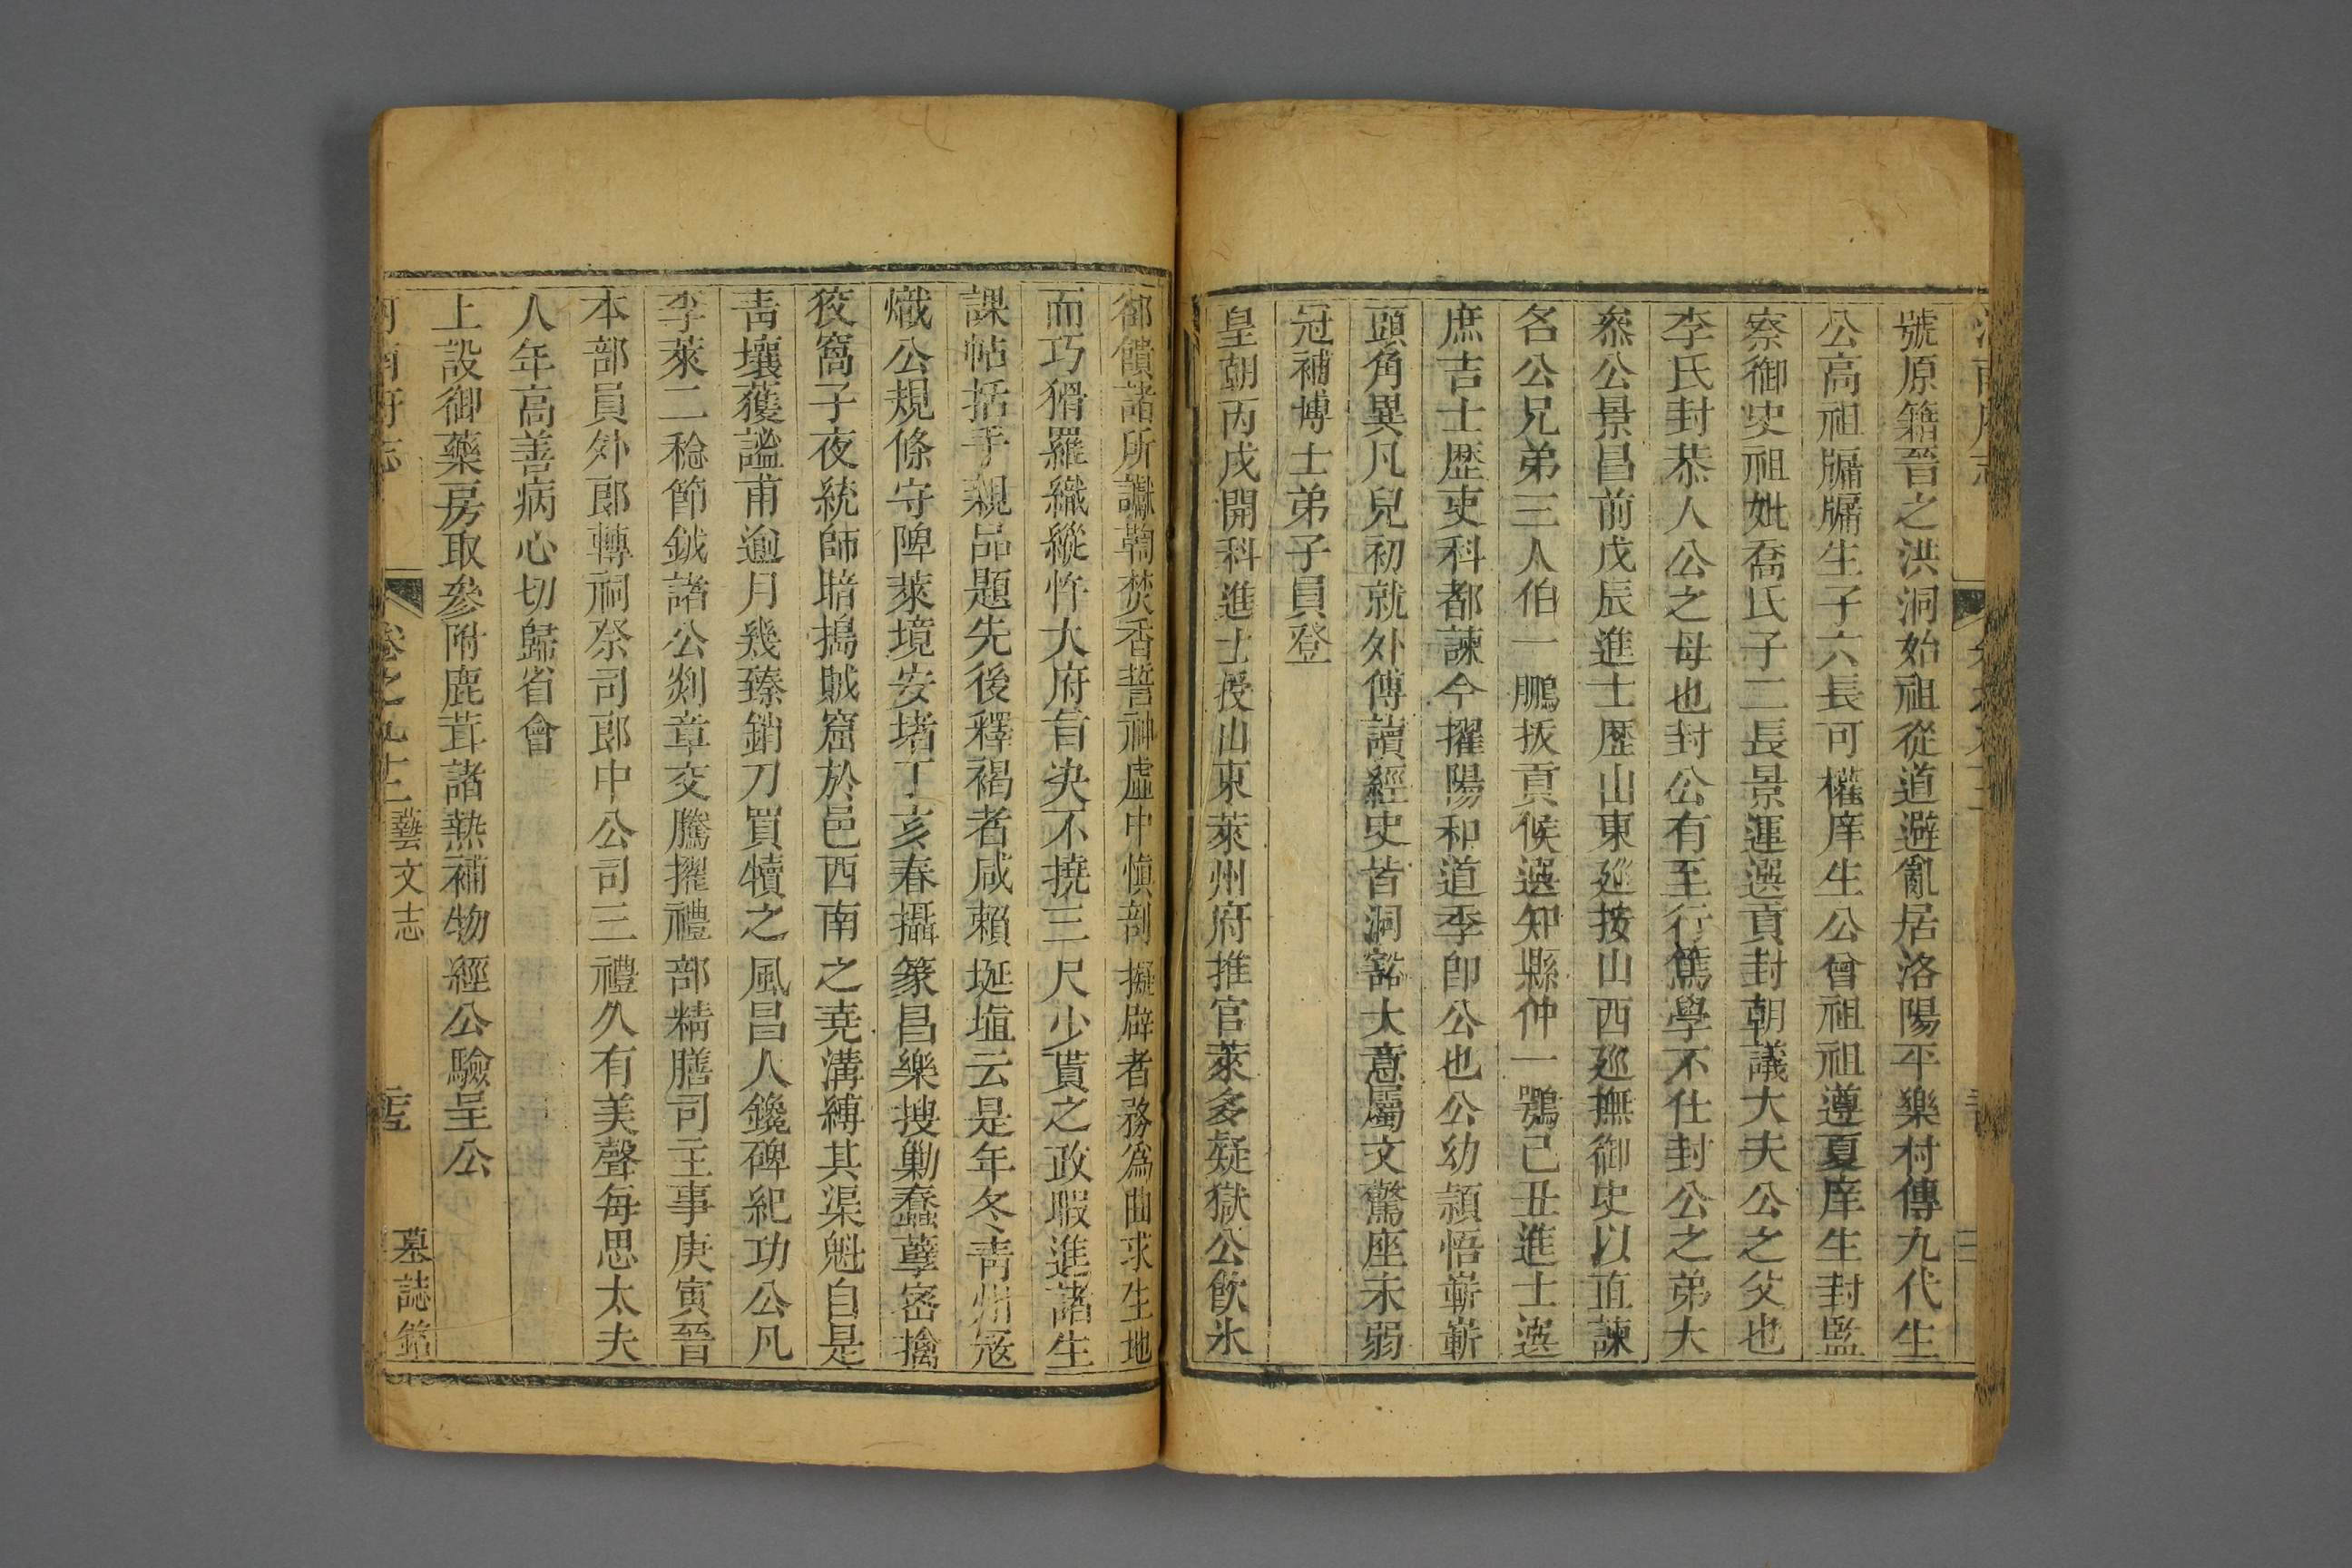 號原籍晉之洪洞始祖從道避亂居洛陽平樂村傳九代生
公高祖牖牖生子六長可權庠生公曾祖祖遵夏庠生封監
察御史祖妣喬氏子二長景運選貢封朝議大夫公之父也
李氏封恭人公之母也封公有至行篤學不仕封公之弟大
叅公景昌前戊辰進士歷山東廵按山西廵撫御史以直諫
名公兄弟三人伯一鵬拔貢候選知縣仲一鶚己丑進士選
庶吉士歷吏科都諫今擢陽和道季卽公也公幼穎悟嶄嶄
頭角異凡兒初就外傅讀經史皆洞豁大意屬文驚座未弱
冠補博士弟子員登
皇朝丙戌開科進士授山東萊州府推官萊多疑獄公飲氷
卻饋諸所讞鞫焚香誓神虛中慎剖擬辟者務為曲求生地
而巧猾羅織縱忤大府旨决不撓三尺少貰之政暇進諸生
課帖括手親品題先後釋褐者咸賴埏埴云是年冬靑州宼
熾公規條守陴萊境安堵丁亥春攝篆昌樂搜勦蠢孽密擒
狡窩子夜統師暗搗賊窟於邑西南之堯溝縛其渠魁自是
靑壤獲謐甫逾月幾臻銷刀買犢之風昌人鑱碑紀功公凡
李萊二稔節鉞諸公剡章交騰擢禮部精膳司主事庚寅晉
本部員外郎轉祠祭司郎中公司三禮久有美聲每思太夫
人年高善病心切歸省會
上設御藥房取參附鹿茸諸熱補物經公驗呈公
卷之九十二 藝文志 墓誌銘